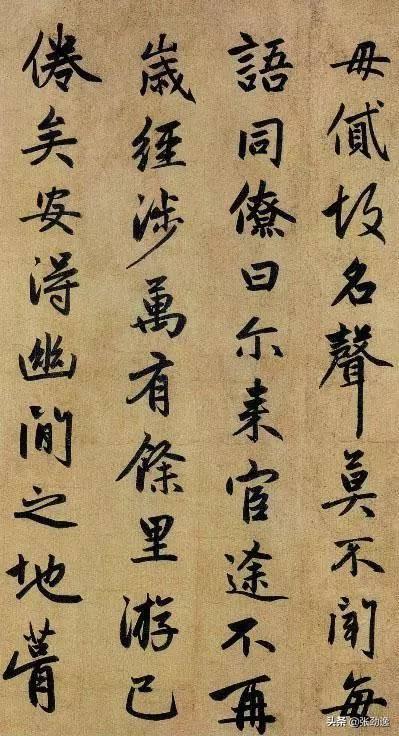 毋貸故名聲莫不聞每
語同僚曰尓来宦途不再
歲經涉萬有餘里游已
倦矣安得幽閒之地
头条 @张劲逸